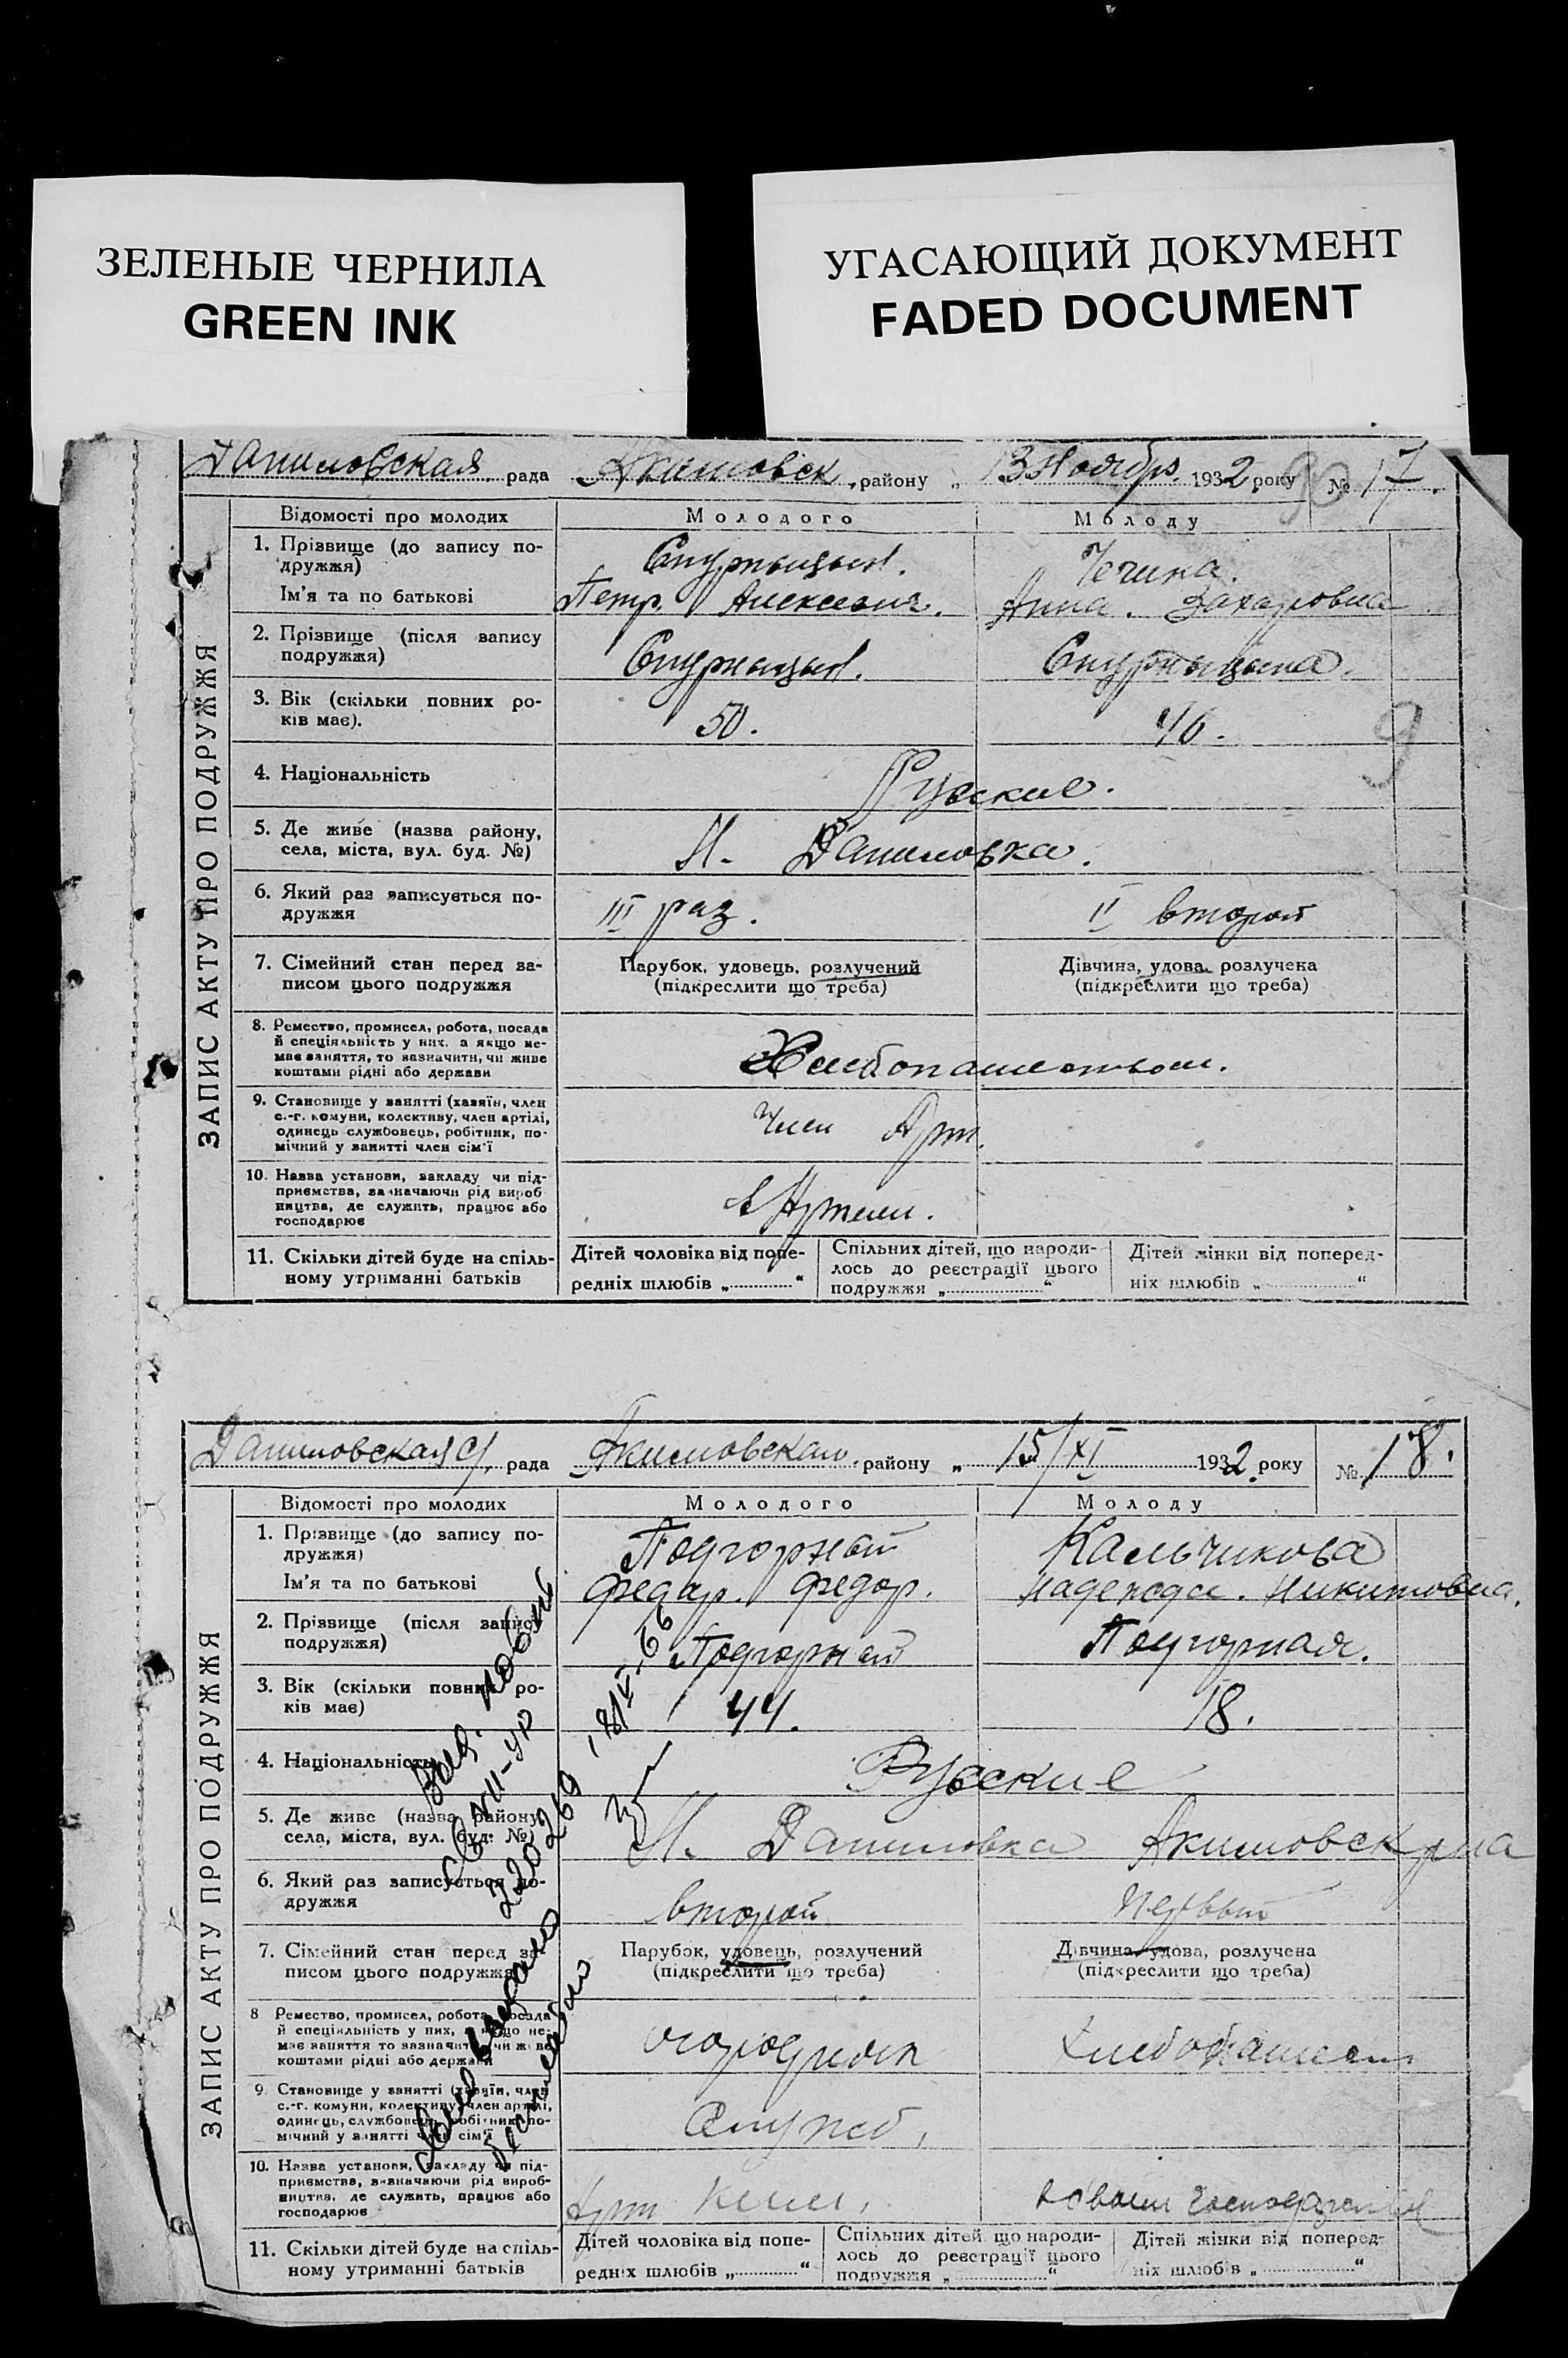 ЗЕЛЕНЫЕ ЧЕРНИЛА
GREEN INK
УГАСАЮЩИЙ ДОКУМЕНТ
FADED DOCUMENT
Даниловская рада Акимовск району „ 13 Ноября 1932 року № 17.
ЗАПИС АКТУ ПРО ПОДРУЖЖЯ
Відомості про молодих Молодого Молоду
1. Прізвище (до запису по-
дружжя)
Ім'я та по батькові
Чечина.
Петр. Алексеевич. Анна. Захаровна
2. Прізвище (після запису
подружжя)
3. Вік (скільки повних ро-
ків має).
50. 46.
9
4. Національність
Русские.
5. Де живе (назва району,
села, міста, вул. буд. №)
Н. Даниловка.
6. Який раз записується по-
дружжя
III раз. II второй
7. Сімейний стан перед за-
писом цього подружжя
Парубок, удовець, розлучений
(підкреслити що треба)
Дівчина, удова, розлучена
(підкреслити що треба)
8. Ремество, промисел, робота, посада
й спеціяльність у них, а якщо не-
має заняття, то зазначити, чи живе
коштами рідні або держави
Хлебопашеством.
9. Становище у занятті (хазяїн, член
с.-г. комуни, колективу, член артілі,
одинець службовець, робітник, по-
мічний у занятті член сім'ї
Член Арт.
10. Назва установи, закладу чи під-
приємства, зазначаючи рід вироб
ництва, де служить, працює або
господарює
в Артели.
11. Скільки дітей буде на спіль-
ному утриманні батьків
Дітей чоловіка від попе-
редніх шлюбів „ “
Спільних дітей, що народи-
лось до реєстрації цього
подружжя „ “
Дітей жінки від поперед-
ніх шлюбів „ “
Даниловская с/ рада Акимовского району „ 15/XI 1932 року № 18.
ЗАПИС АКТУ ПРО ПОДРУЖЖЯ
Відомості про молодих Молодого Молоду
1. Прізвище (до запису по-
дружжя)
Ім'я та по батькові
Подгорный Кальчикова
Федор. Федор. Надежда. Никитовна.
2. Прізвище (після запису
подружжя)
Подгорный Подгорная.
3. Вік (скільки повних ро-
ків має)
44. 18.
4. Національність
Русские
5. Де живе (назва району,
села, міста, вул. буд. №)
Н. Даниловка Акимовск р-на
6. Який раз записується по-
дружжя
второй первый
7. Сімейний стан перед за-
писом цього подружжя
Парубок, удовець, розлучений
(підкреслити що треба)
Дівчина, удова, розлучена
(підкреслити що треба)
8 Ремество, промисел, робота, посада
й спеціяльність у них, а якщо не-
має заняття то зазначити, чи живе
коштами рідні або держави
огородник Хлебопашест
9. Становище у занятті (хазяїн, член
с.-г. комуни, колективу, член артілі,
одинець, службовець, робітник, по-
мічний у занятті член сім'ї
Служб,
10. Назва установи, закладу чи під-
приємства, зазначаючи рід вироб-
ництва, де служить, працює або
господарює
Арт
11. Скільки дітей буде на спіль-
ному утриманні батьків
Дітей чоловіка від попе-
редніх шлюбів „ “
Спільних дітей, що народи-
лось до реєстрації цього
подружжя „ “
Дітей жінки від поперед-
ніх шлюбів „ “